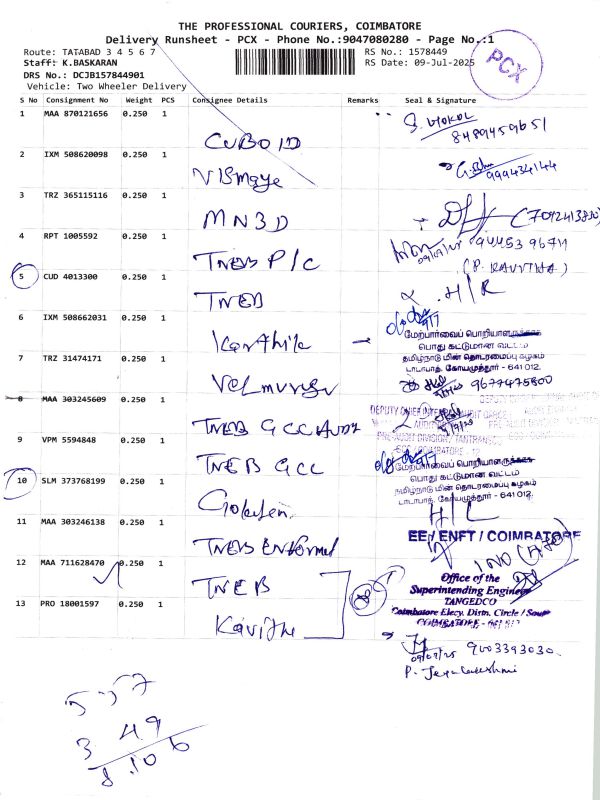 THE PROFESSIONAL COURIERS, COIMBATORE
Delivery Runsheet - PCX - Phone No.:9047080280 - Page No.:1
Route: TATABAD 3 4 5 6 7
RS No.: 1578449
Staff: K.BASKARAN
RS Date: 09-Jul-2025
PCX
DRS No.: DCJB157844901
Vehicle: Two Wheeler Delivery
S No Consignment No Weight PCS Consignee Details Remarks Seal & Signature
1 MAA 870121656 0.250 1 CUBOID
8489459651
2 IXM 508620098 0.250 1 VISmaya
999434144
3 TRZ 365115116 0.250 1 MN3D
(7092413830)
4 RPT 1005592 0.250 1 TNEB P/C
94453 96711
(P. KAVITHA)
5 CUD 4013300 0.250 1 TNEB
H/R
6 IXM 508662031 0.250 1 Karthik
மேற்பார்வைப் பொறியாளர்
பொது கட்டுமான வட்டம்
தமிழ்நாடு மின் தொடரமைப்பு கழகம்
டாடாபாத், கோயமுத்தூர் - 641 012.
7 TRZ 31474171 0.250 1 Velmurugan
9677475800
8 MAA 303245609 0.250 1 TNEB GCC Audit
DEPUTY CHIEF INTERNAL AUDIT OFFICER
9 VPM 5594848 0.250 1 TNEB GCC
மேற்பார்வைப் பொறியாளர்
பொது கட்டுமான வட்டம்
தமிழ்நாடு மின் தொடரமைப்பு கழகம்
டாடாபாத், கோயமுத்தூர் - 641 012.
10 SLM 373768199 0.250 1
H/L
11 MAA 303246138 0.250 1 TNEB
EE / ENFT / COIMBATORE
12 MAA 711628470 0.250 1 TNEB
Office of the
Superintending Engineer
TANGEDCO
Coimbatore Elecy. Distn. Circle / South
COIMBATORE
13 PRO 18001597 0.250 1 Kavitha
09/07/25 9003393030
P. Jeyalakshmi
5-57
3 49
8.106